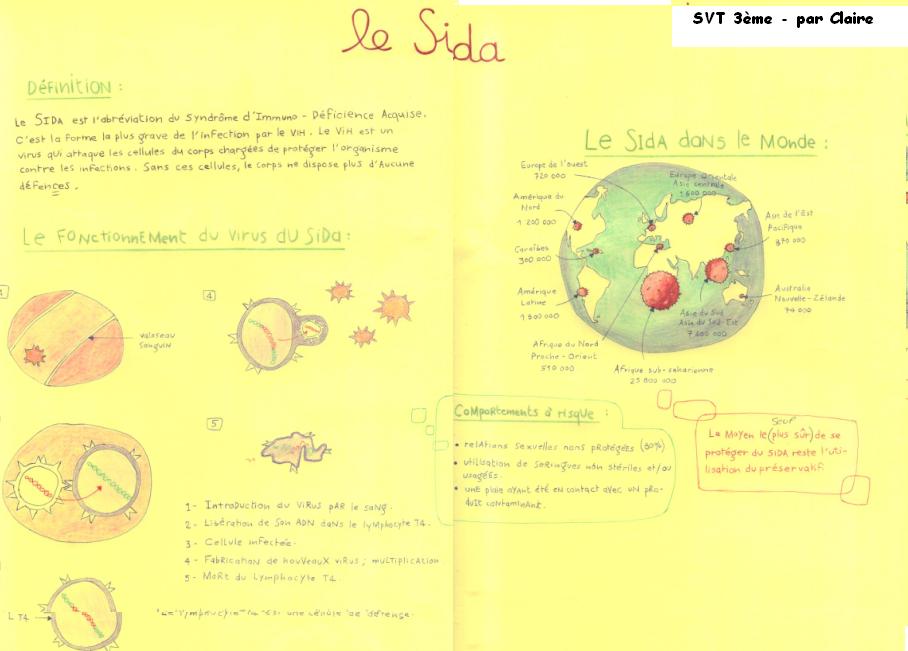 SVT 3ème - par Claire
le Sida
Définition :
Le SIDA est l'abréviation du Syndrôme d'Immuno - Déficience Acquise.
C'est la forme la plus grave de l'infection par le VIH. Le VIH est un
virus qui attaque les cellules du corps chargées de protéger l'organisme
contre les infections. Sans ces cellules, le corps ne dispose plus d'Aucune
défences.
Le Fonctionnement du Virus du SiDa :
vaisseau
sanguin
4
5
1- Introduction du Virus par le sang.
2- Libération de Son ADN dans le lymphocyte T4.
3- Cellule infectée.
4- Fabrication de nouveaux virus ; multiplication
5- Mort du Lymphocyte T4.
L T4
une cellule de défense.
Le Sida dans le Monde :
Europe de l'ouest
720 000
Europe Orientale
Asie centrale
1 600 000
Amérique du
Nord
1 200 000
Asie de l'Est
Pacifique
870 000
Caraïbes
300 000
Amérique
Latine
Australie
Nouvelle-Zélande
74 000
Asie du Sud
Asie du Sud-Est
Afrique du Nord
Proche-Orient
510 000
Afrique sub-saharienne
25 800 000
Comportements à risque :
• relations sexuelles nons protégées
• utilisation de seringues non stériles et/ou
usagées.
• une plaie ayant été en contact avec un pro-
duit contaminant.
Seul
Le Moyen le (plus sûr) de se
protéger du SIDA reste l'uti-
lisation du préservatif.